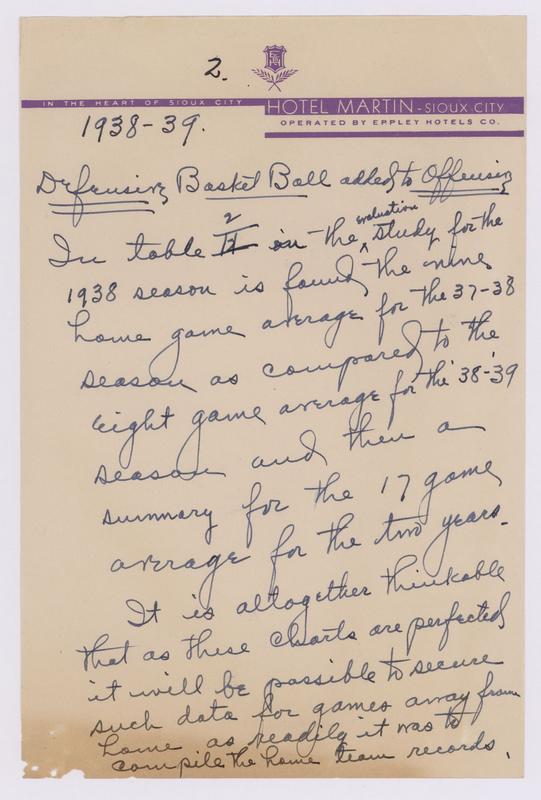 2.
IN THE HEART OF SIOUX CITY
HOTEL MARTIN - SIOUX CITY
OPERATED BY EPPLEY HOTELS CO.
1938-39.
Defensive Basket Ball added to Offensive
2
In table II in the evaluation study for the
1938 season is found the nine
home game average for the 37-38
season as compared to the
eight game average for the '38-'39
season and then a
summary for the 17 game
average for the two years.
It is altogether thinkable
that as these charts are perfected
it will be possible to secure
such data for games away from
home as readily it was to
compile the home team records.